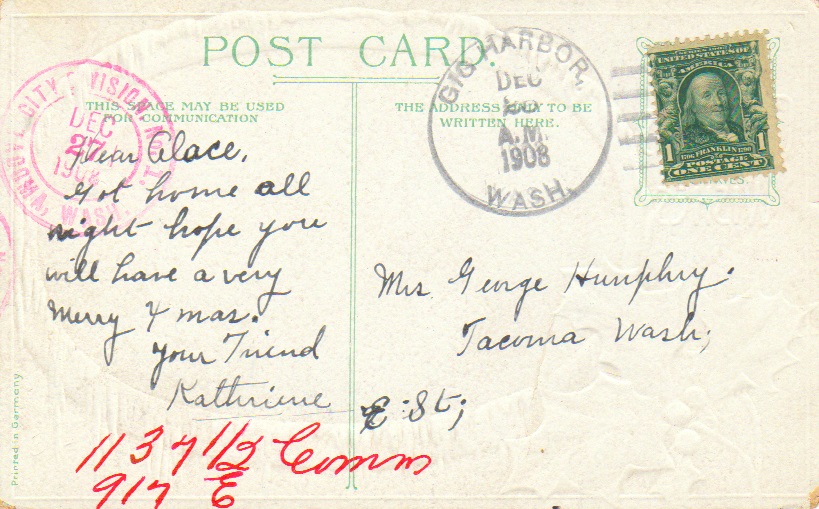 POST CARD.
THIS SPACE MAY BE USED
FOR COMMUNICATION
THE ADDRESS ONLY TO BE
WRITTEN HERE.
GIG HARBOR,
DEC
A.M.
1908
WASH.
UNITED STATES OF
AMERICA
1 FRANKLIN 1
POSTAGE
ONE CENT
CITY DIVISION No. 1.
DEC
27
WASH.
Dear Alace,
Got home all
right hope you
will have a very
Merry Xmas.
Your Friend
Kathriene
Mrs George Humphry.
Tacoma Wash;
E St;
1137 1/2 Comm
917 E
Printed in Germany